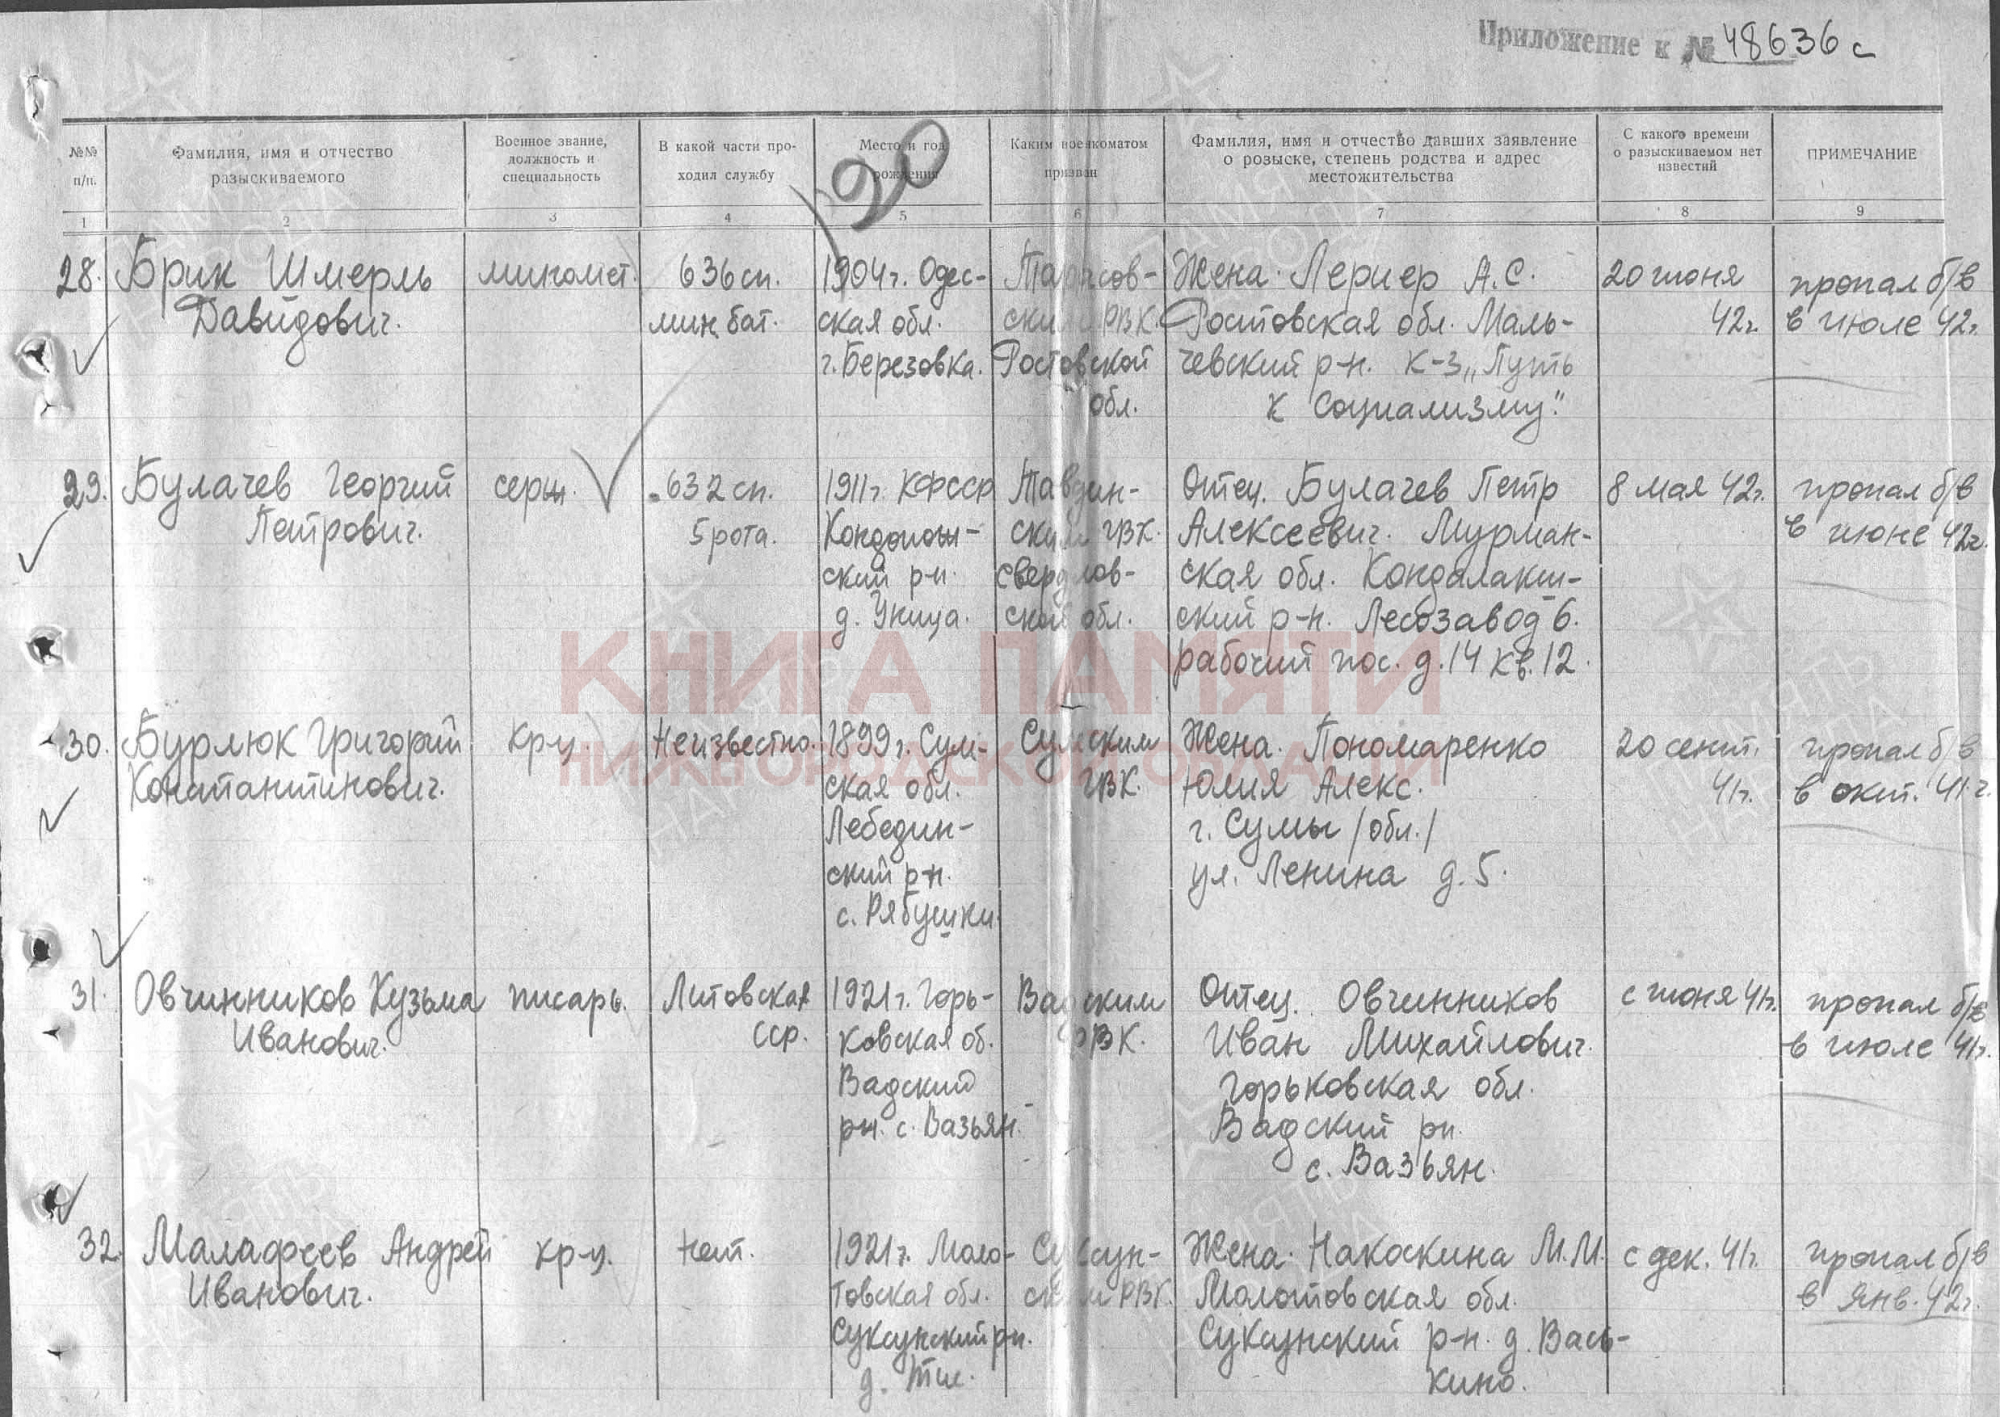 Приложение к № 48636с
120
№№ п/п.
Фамилия, имя и отчество разыскиваемого
Военное звание, должность и специальность
В какой части проходил службу
Место и год рождения
Каким военкоматом призван
Фамилия, имя и отчество давших заявление о розыске, степень родства и адрес местожительства
С какого времени о разыскиваемом нет известий
ПРИМЕЧАНИЕ
1 2 3 4 5 6 7 8 9
28. Брик Шмерль Давидович.
миномет.
636 сп. мин. бат.
1904 г. Одесская обл. г. Березовка.
Тарасовским РВК Ростовской обл.
Жена. Лернер А.С. Ростовская обл. Мальчевский р-н. к-з „Путь к социализму".
20 июня 42 г.
пропал б/в в июле 42 г.
29. Булачев Георгий Петрович.
серж.
632 сп. 5 рота.
1911 г. КФССР Кондопошский р-н. д. Уница.
Тавдинским ГВК. Свердловской обл.
Отец. Булачев Петр Алексеевич. Мурманская обл. Кондалакшский р-н. Лесозавод 6. рабочий пос. д. 14 кв. 12.
8 мая 42 г.
пропал б/в в июне 42 г.
30. Бурлюк Григорий Константинович.
кр-ц.
Неизвестно.
1899 г. Сумская обл. Лебединский р-н. с. Рябушки.
Сумским ГВК.
Жена. Пономаренко Юлия Алекс. г. Сумы /обл./ ул. Ленина д. 5.
20 сент. 41 г.
пропал б/в в окт. 41 г.
31. Овчинников Кузьма Иванович.
писарь.
Литовская ССР.
1921 г. Горьковская об. Вадский рн. с. Вазьян.
Вадским РВК.
Отец. Овчинников Иван Михайлович. Горьковская обл. Вадский рн. с. Вазьян.
с июня 41 г.
пропал б/в в июле 41 г.
32. Малафеев Андрей Иванович.
кр-ц.
нет.
1921 г. Молотовская обл. Суксунский рн. д.
Суксунским РВК.
Жена. Накоскина М.М. Молотовская обл. Суксунский р-н. д. Васькино.
с дек. 41 г.
пропал б/в в янв. 42 г.
КНИГА ПАМЯТИ
НИЖЕГОРОДСКОЙ ОБЛАСТИ